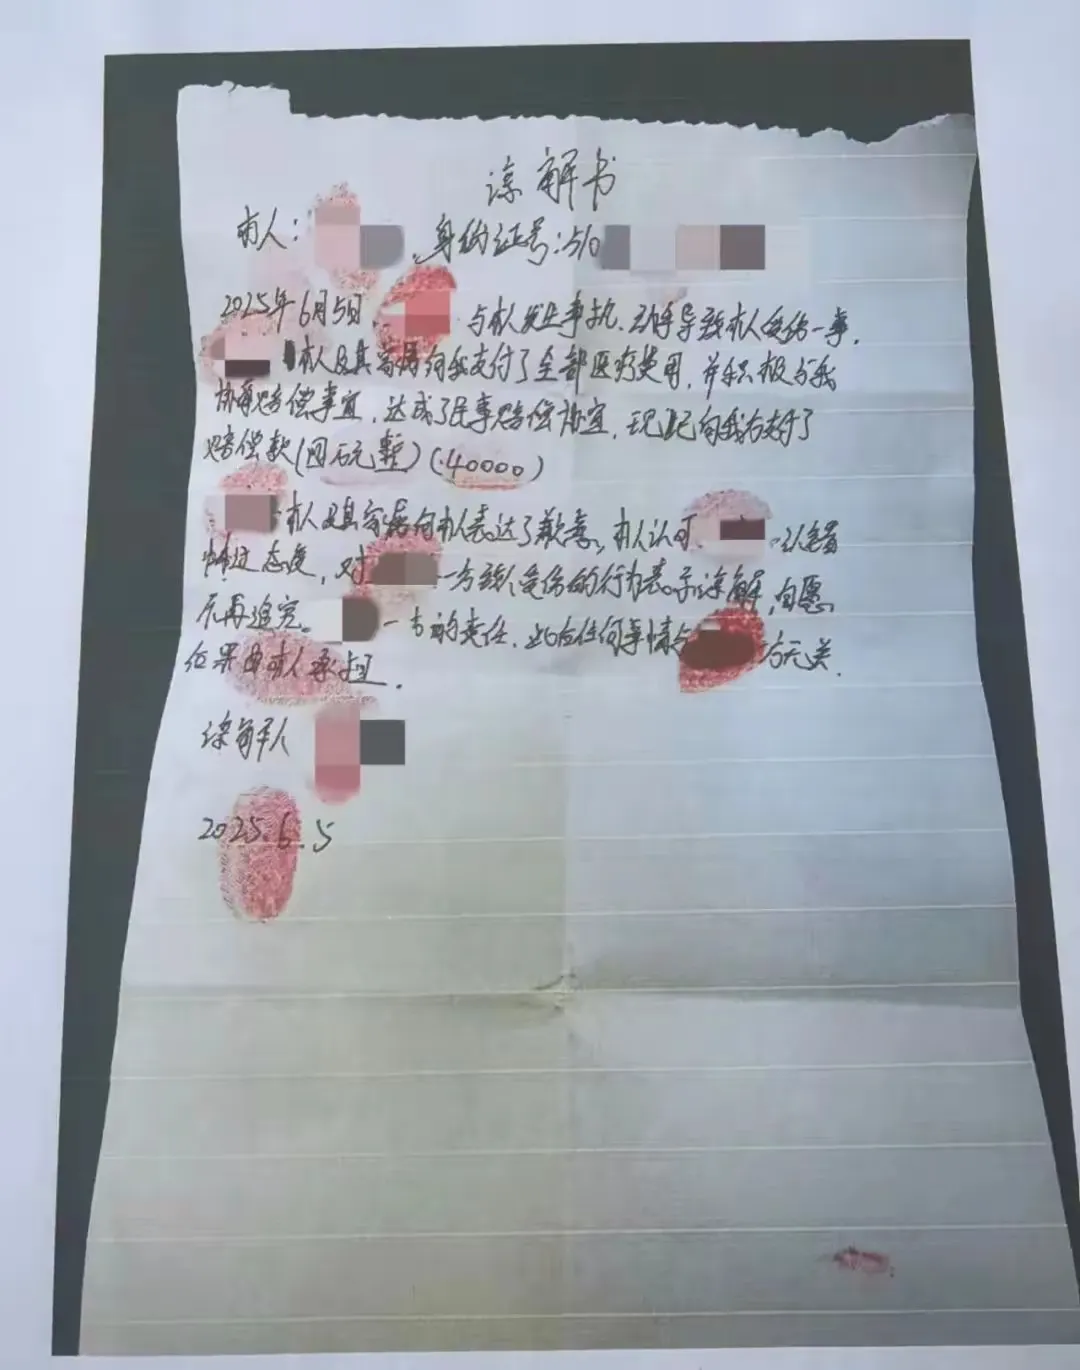 谅解书
本人: ,身份证号:510
2025年6月5日 与本人发生争执,动手导致本人受伤一事,
本人及其家属向我支付了全部医疗费用,并积极与我
协商赔偿事宜,达成了民事赔偿协宜,现已向我方支付了
赔偿款(四万元整)(40000)
本人及其家属向本人表达了歉意,本人认可 认错
悔过态度,对 一方致人受伤的行为表示谅解,自愿
不再追究 一方的责任,此后任何事情与 方无关.
后果由本人承担.
谅解人
2025.6.5